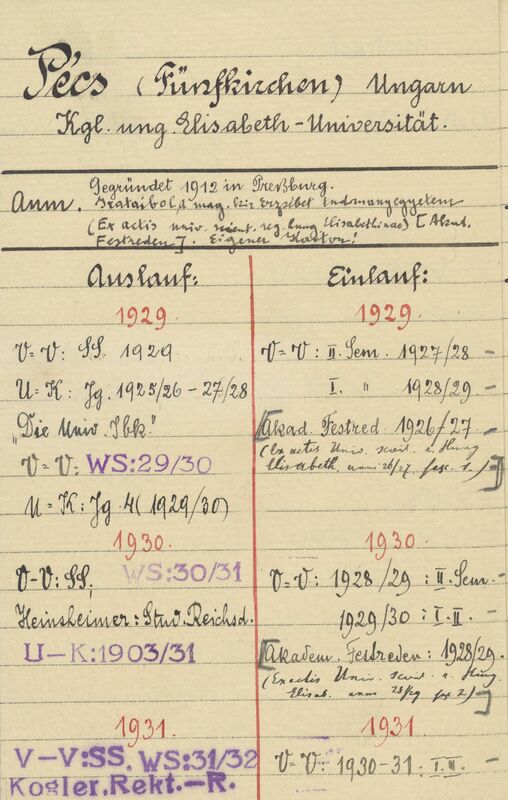 Pécs (Fünfkirchen) Ungarn
Kgl. ung. Elisabeth-Universität.
Anm. Gegründet 1912 in Preßburg.
mag. kir Erzsébet tudmányegyetem
(Ex actis univ. scient. reg. hung. Elisabethinae) [Akad.
Festreden]. Eigener
Auslauf:
1929
V=V: SS 1929
U=K: Jg. 1925/26 - 27/28
"Die Univ. Ibk."
V=V: WS:29/30
U=K: Jg 4 (1929/30)
1930.
V-V: SS, WS:30/31
Heinsheimer: Stud. Reichsd.
U-K:1903/31
1931
V-V:SS. WS:31/32
Kogler. Rekt.-R.
Einlauf:
1929
V=V: II. Sem. 1927/28 -
I. " 1928/29. -
[Akad. Festred. 1926/27 -
(Ex actis Univ. scient. r. Hung
Elisabeth. anni 26/27. fasc. 1.)]
1930.
V=V: 1928/29: II. Sem. -
1929/30: I. II. -
[Akadem. Festreden: 1928/29. -
(Ex actis Univ. scient. r. Hung.
Elisab. anni 28/29 fasc. 2)]
1931
V=V: 1930-31: I. II. -